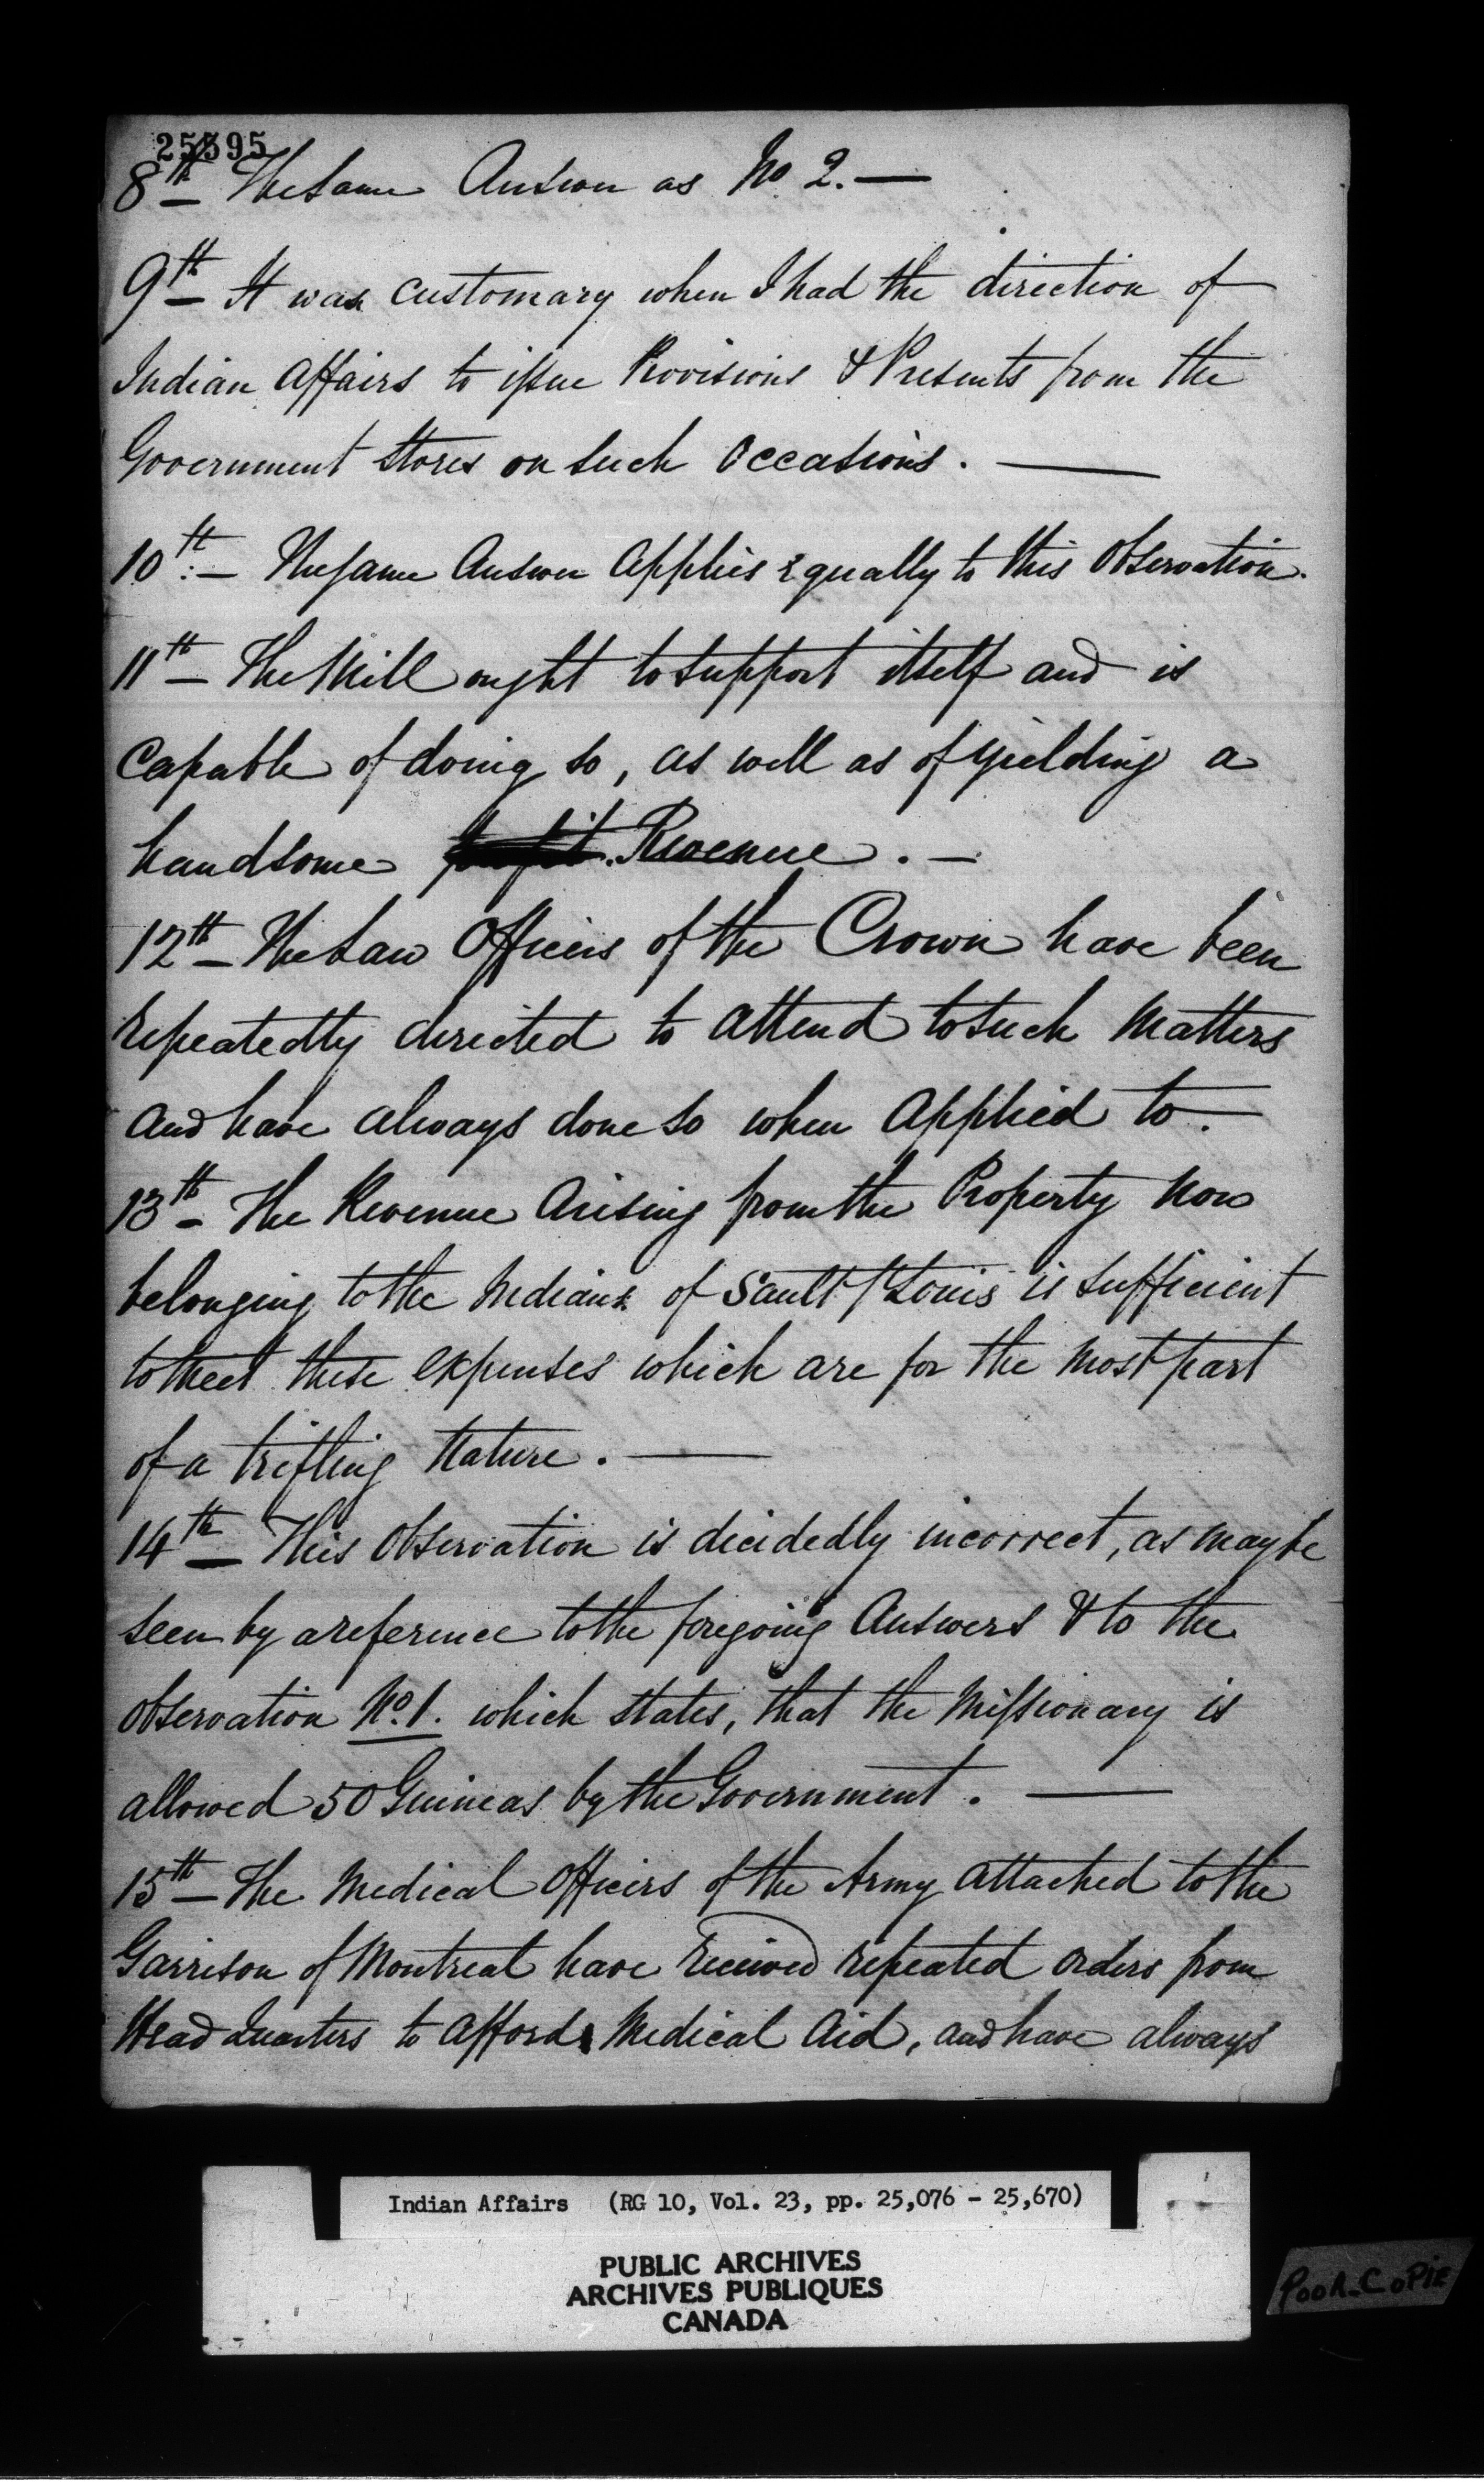 25595
8th The Same Answer as No 2. —
9th — It was customary when I had the direction of
Indian Affairs to issue Provisions & Presents from the
Government Stores on Such Occasions. —
10th: — The same Answer Applies Equally to this Observation.
11th — The Mill ought to Support itself and is
Capable of doing so, as well as of yielding a
handsome profit. Revenue. —
12th — The Law Officers of the Crown have been
repeatedly directed to attend to Such Matters
and have always done so when Applied to. —
13th — The Revenue Arising from the Property now
belonging to the Indians of Sault St Louis is sufficient
to meet these expenses which are for the most part
of a trifling Nature. —
14th — This Observation is decidedly incorrect, as may be
seen by a reference to the foregoing Answers & to the
observation No. 1. which states, that the Missionary is
allowed 50 Guineas by the Government. —
15th — The Medical Officers of the Army attached to the
Garrison of Montreal have received repeated orders from
Head Quarters to afford Medical Aid, and have always
Indian Affairs (RG 10, Vol. 23, pp. 25,076 - 25,670)
PUBLIC ARCHIVES
ARCHIVES PUBLIQUES
CANADA
POOR COPIE